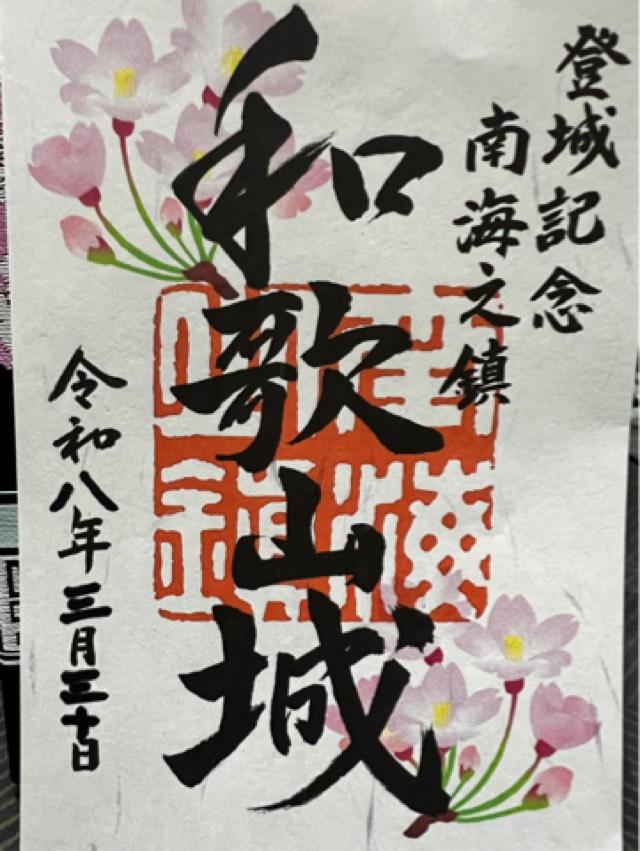 登城記念
南海之鎮
和歌山城
令和八年三月三十日